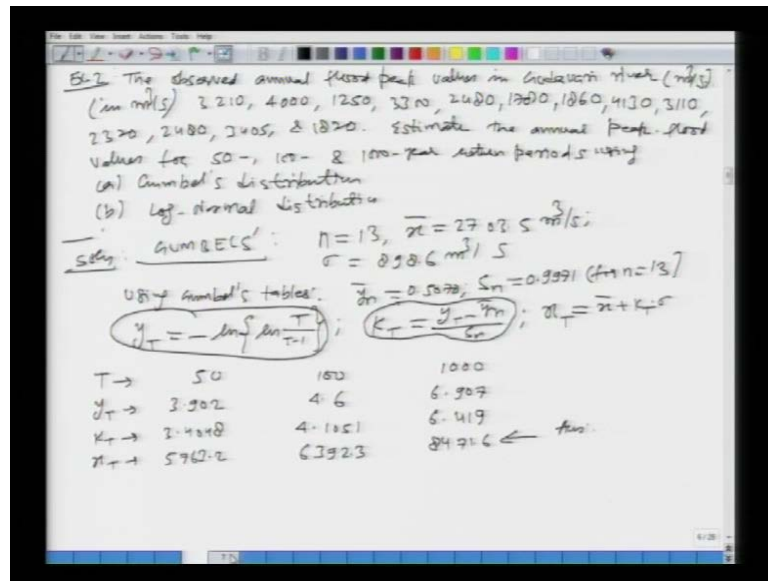 File Edit View Insert Actions Tools Help
Ex.2 The observed annual flood peak values in Godavari river (m³/s)
(in m³/s) 3210, 4000, 1250, 3300, 2480, 1780, 1860, 4130, 3110,
2320, 2480, 3405, & 1820. Estimate the annual peak-flood
values for 50-, 100- & 1000-year return periods using
(a) Gumbel's distribution
(b) Log-Normal distribution
Soln: GUMBELS': n=13, x̄ = 2703.5 m³/s;
σ = 898.6 m³/s
Using Gumbel's tables: ȳn = 0.5070, Sn = 0.9971 (for n=13)
y_T = -ln{ln T/(T-1)}; K_T = (y_T - ȳn)/Sn; x_T = x̄ + K_T σ
T → 50 100 1000
y_T → 3.902 4.6 6.907
K_T → 3.4048 4.1051 6.419
x_T → 5763.2 6392.3 8471.6 ← Ans.
6/28